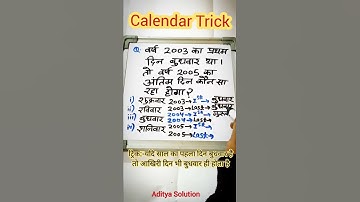 Calendar Trick
Q: वर्ष 2003 का प्रथम
दिन बुधवार था।
तो वर्ष 2005 का
अंतिम दिन कौन सा
रहा होगा?
i) शुक्रवार 2003→1st बुधवार
ii) रविवार 2003→Last→बुधवार
iii) बुधवार 2004→1st→गुरु
iv) शनिवार 2005→1st→
2005→Last→
ट्रिक:-यदि साल का पहला दिन बुधवार है
तो आखिरी दिन भी बुधवार ही होता है
Aditya Solution